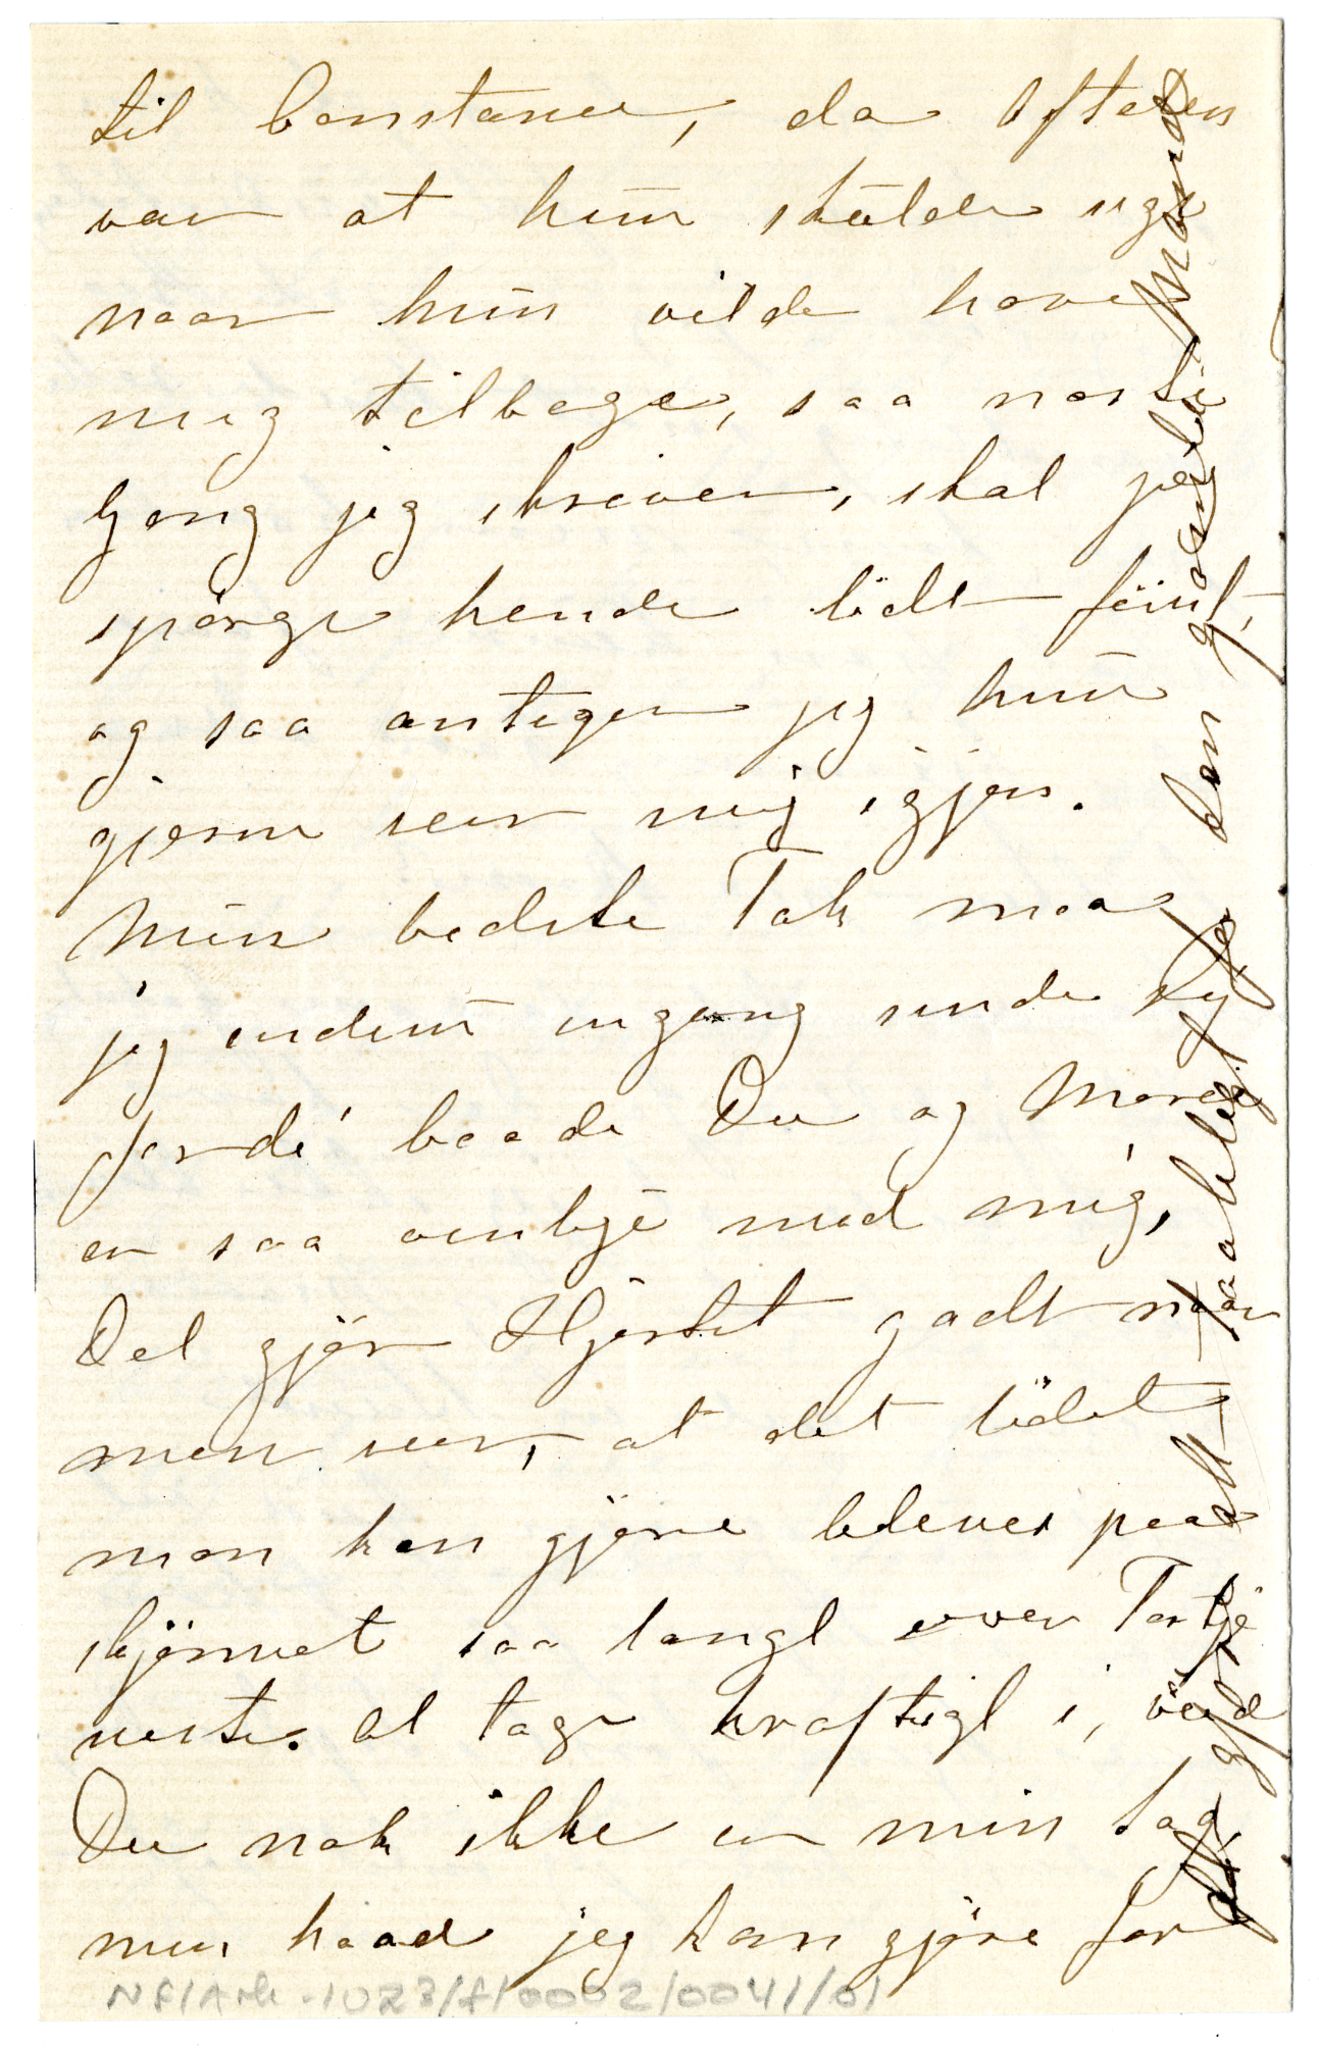 til Constance, da Aftalen
var at hun skulde sige
naar hun vilde have
mig tilbage, saa næste
Gang jeg skriver, skal jeg
spørge hende lidt fiint,
og saa antager jeg hun
gjerne seer mig igjen.
Min bedste Tak maa
jeg endnu engang sende Dig
fordi baade Du og Mand
er saa venlige mod mig,
Det gjør Hjertet godt naar
man seer, at det lidet
man kan gjøre bliver paa
skjønnet saa langt over Fortje
neste. At tage kraftigt i, veed
Du nok ikke er min Sag
men hvad jeg kan gjøre for
at gjøre alt saa bliver for den gamle Mand
NF/Ark-1023/F/0002/0041/01